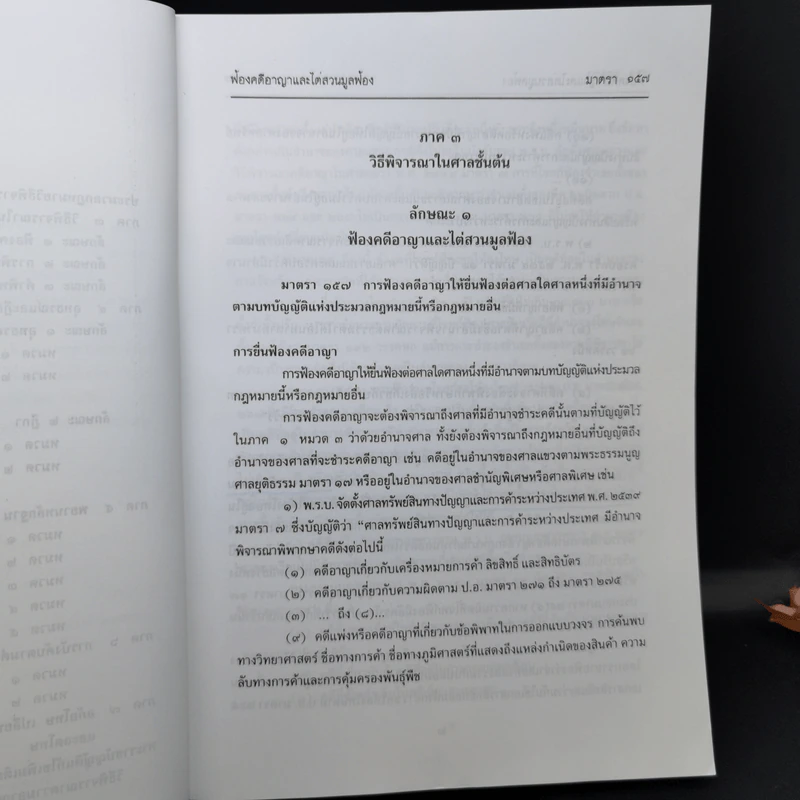 ฟ้องคดีอาญาและไต่สวนมูลฟ้อง มาตรา ๑๕๗
ภาค ๓
วิธีพิจารณาในศาลชั้นต้น
ลักษณะ ๑
ฟ้องคดีอาญาและไต่สวนมูลฟ้อง
มาตรา ๑๕๗ การฟ้องคดีอาญาให้ยื่นฟ้องต่อศาลใดศาลหนึ่งที่มีอำนาจ
ตามบทบัญญัติแห่งประมวลกฎหมายนี้หรือกฎหมายอื่น
การยื่นฟ้องคดีอาญา
การฟ้องคดีอาญาให้ยื่นฟ้องต่อศาลใดศาลหนึ่งที่มีอำนาจตามบทบัญญัติแห่งประมวล
กฎหมายนี้หรือกฎหมายอื่น
การฟ้องคดีอาญาจะต้องพิจารณาถึงศาลที่มีอำนาจชำระคดีนั้นตามที่บัญญัติไว้
ในภาค ๑ หมวด ๓ ว่าด้วยอำนาจศาล ทั้งยังต้องพิจารณาถึงกฎหมายอื่นที่บัญญัติถึง
อำนาจของศาลที่จะชำระคดีอาญา เช่น คดีอยู่ในอำนาจของศาลแขวงตามพระธรรมนูญ
ศาลยุติธรรม มาตรา ๑๗ หรืออยู่ในอำนาจของศาลชำนัญพิเศษหรือศาลพิเศษ เช่น
๑) พ.ร.บ. จัดตั้งศาลทรัพย์สินทางปัญญาและการค้าระหว่างประเทศ พ.ศ. ๒๕๓๙
มาตรา ๗ ซึ่งบัญญัติว่า “ศาลทรัพย์สินทางปัญญาและการค้าระหว่างประเทศ มีอำนาจ
พิจารณาพิพากษาคดีดังต่อไปนี้
(๑) คดีอาญาเกี่ยวกับเครื่องหมายการค้า ลิขสิทธิ์ และสิทธิบัตร
(๒) คดีอาญาเกี่ยวกับความผิดตาม ป.อ. มาตรา ๒๗๑ ถึง มาตรา ๒๗๕
(๓) ... ถึง (๘)...
(๙) คดีแพ่งหรือคดีอาญาที่เกี่ยวกับข้อพิพาทในการออกแบบวงจร การค้นพบ
ทางวิทยาศาสตร์ ชื่อทางการค้า ชื่อทางภูมิศาสตร์ที่แสดงถึงแหล่งกำเนิดของสินค้า ความ
ลับทางการค้าและการคุ้มครองพันธุ์พืช